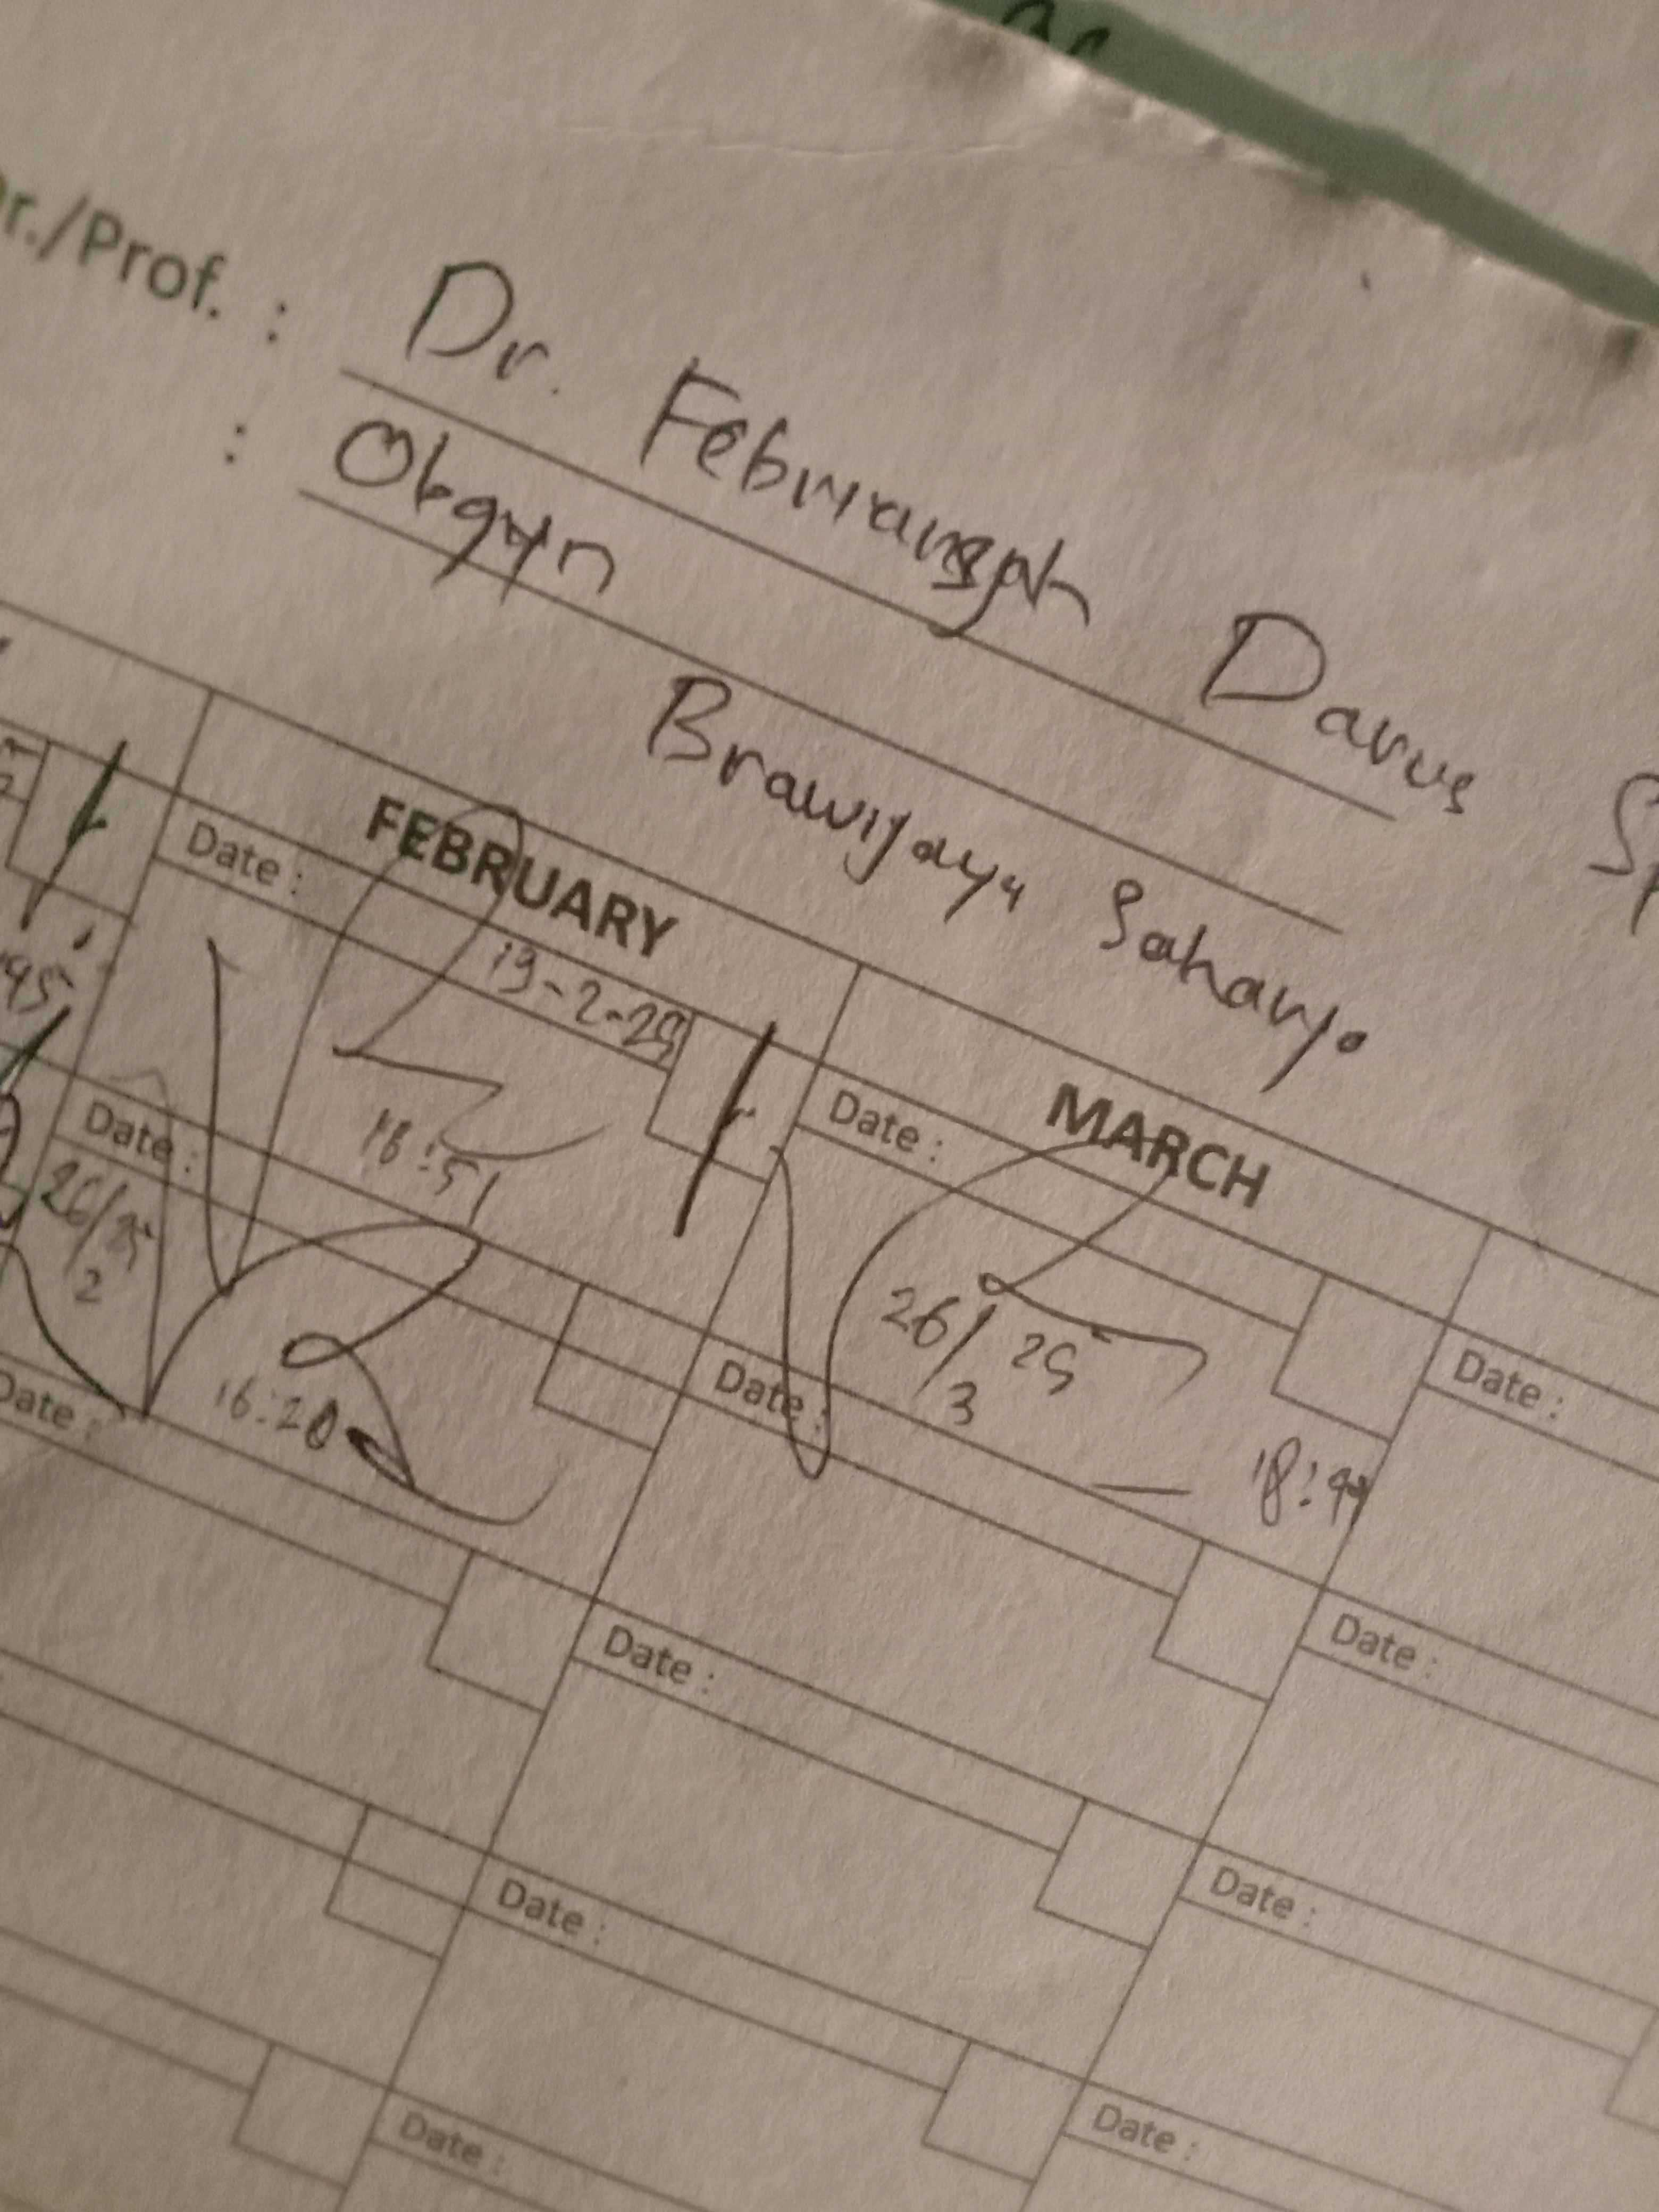 Dr./Prof. : Dr. Febriansyah Darus Sp
: Obgyn
Brawijaya Saharjo
FEBRUARY
MARCH
Date : 19-2-25
16:51
Date :
26/2 25
16:20
Date :
26/3 25
18:44
Date :
Date :
Date :
Date :
Date :
Date :
Date :
Date :
Date :
Date :